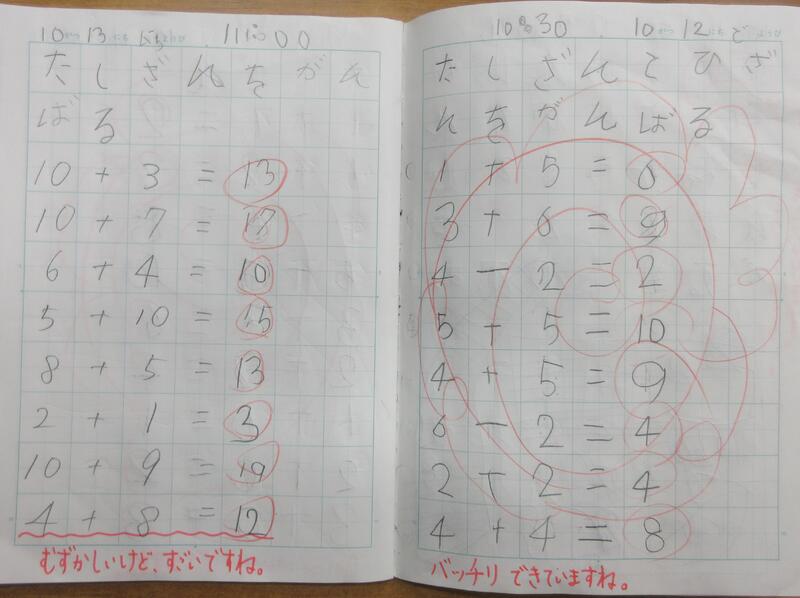 10がつ13にち ようび 11 00
たしざんをがん
ばる
10 + 3 = 13
10 + 7 = 17
6 + 4 = 10
5 + 10 = 15
8 + 5 = 13
2 + 1 = 3
10 + 9 = 19
4 + 8 = 12
むずかしいけど、すごいですね。
10 30 10がつ12にちどようび
たしざんとひざ
んをがんばる
1 + 5 = 6
3 + 6 = 9
4 - 2 = 2
5 + 5 = 10
4 + 5 = 9
6 - 2 = 4
2 + 2 = 4
4 + 4 = 8
バッチリできていますね。